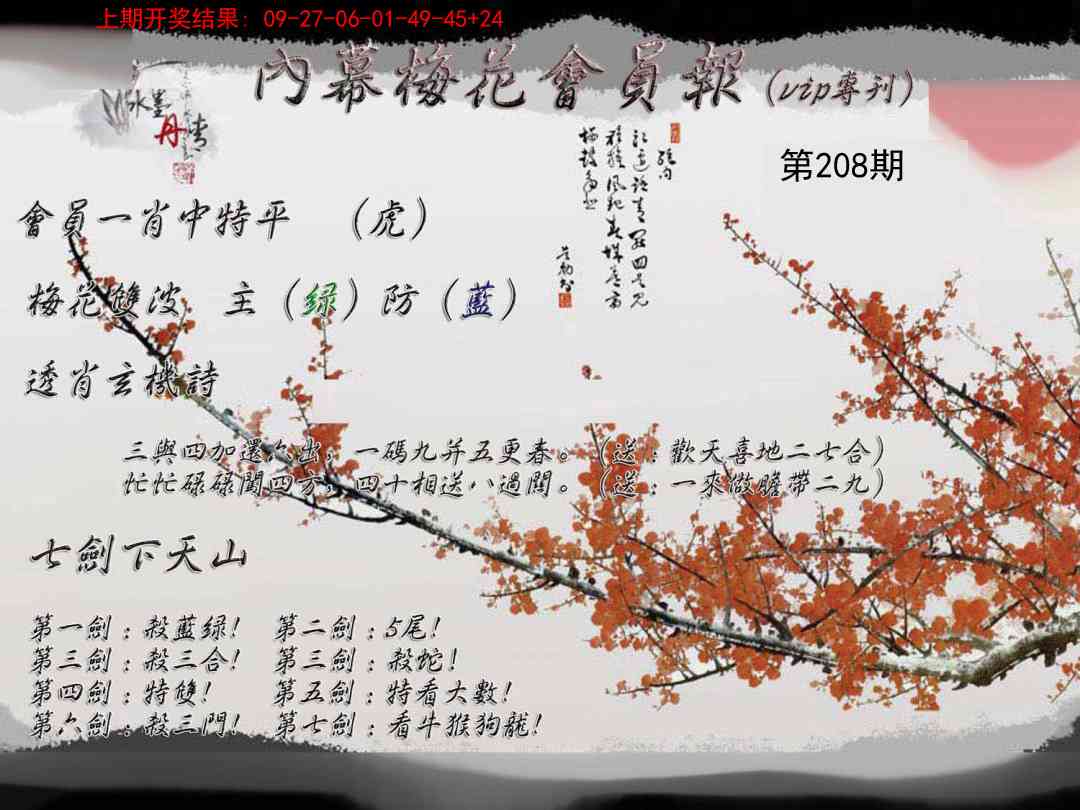 上期开奖结果: 09-27-06-01-49-45+24
內幕梅花會員報（vip專刊）
水墨
丹青
第208期
會員一肖中特平 （虎）
梅花雙波 主（绿）防（藍）
透肖玄機詩
三與四加還六出，一碼九并五更春。（送：歡天喜地二七合）
忙忙碌碌闖四方，四十相送八過關。（送：一來做膽帶二九）
七劍下天山
第一劍：殺藍绿！ 第二劍：5尾！
第三劍：殺三合！ 第三劍：殺蛇！
第四劍：特雙！ 第五劍：特看大數！
第六劍：殺三門！ 第七劍：看牛猴狗龍！